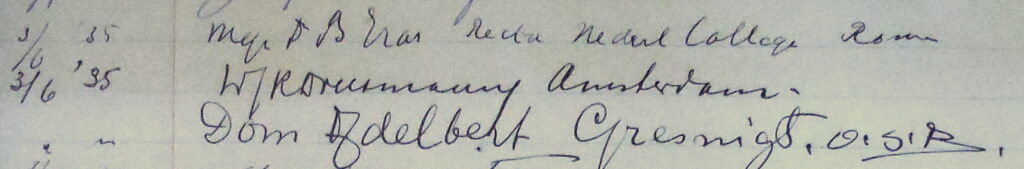 3/6 '35 Mgr D B Eras Rector Nederl College Rome
3/6 '35 W J R Dreesmann Amsterdam.
" " Dom Adelbert Gresnigt. O.S.B.